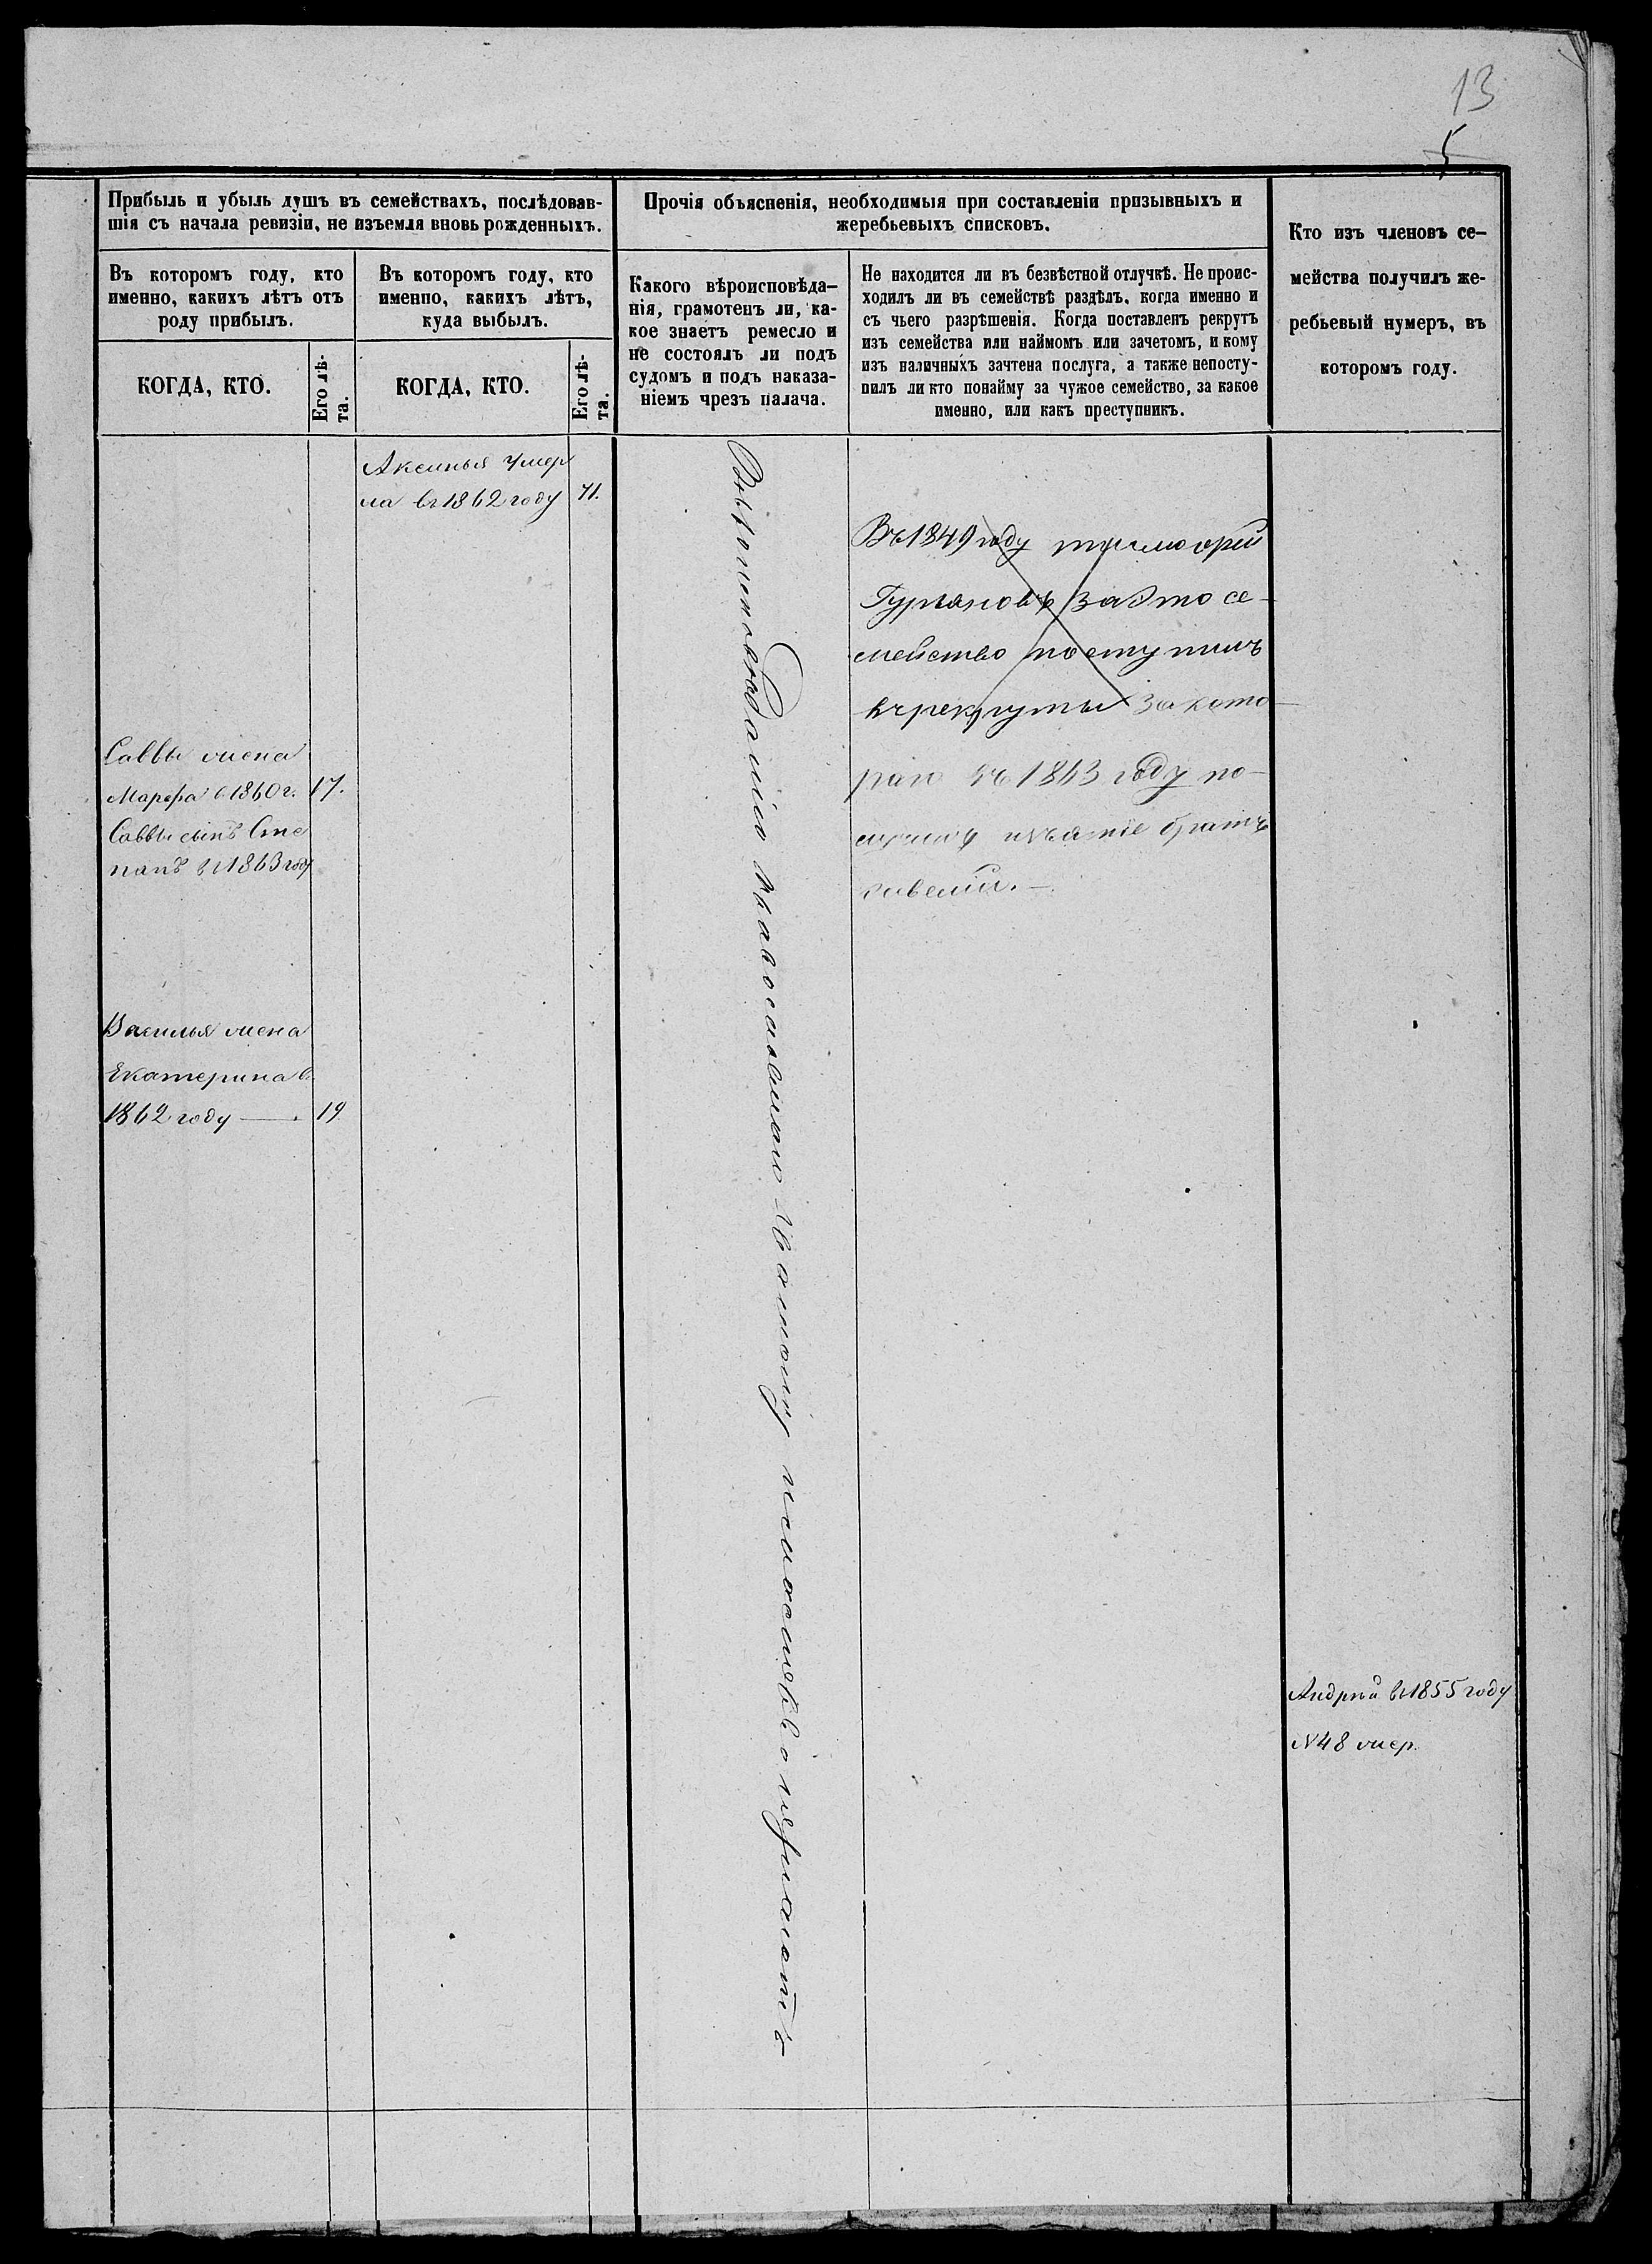 13
5
Прибыль и убыль душъ въ семействахъ, послѣдовав-
шія съ начала ревизіи, не изъемля вновь рожденныхъ.
Прочія объясненія, необходимыя при составленіи призывныхъ и
жеребьевыхъ списковъ.
Кто изъ членовъ се-
мейства получилъ же-
ребьевый нумеръ, въ
которомъ году.
Въ которомъ году, кто
именно, какихъ лѣтъ отъ
роду прибылъ.
Въ которомъ году, кто
именно, какихъ лѣтъ,
куда выбылъ.
Какого вѣроисповѣда-
нія, грамотенъ ли, ка-
кое знаетъ ремесло и
не состоялъ ли подъ
судомъ и подъ наказа-
ніемъ чрезъ палача.
Не находится ли въ безвѣстной отлучкѣ. Не проис-
ходилъ ли въ семействѣ раздѣлъ, когда именно и
съ чьего разрѣшенія. Когда поставленъ рекрутъ
изъ семейства или наймомъ или зачетомъ, и кому
изъ наличныхъ зачтена послуга, а также непосту-
пилъ ли кто понайму за чужое семейство, за какое
именно, или какъ преступникъ.
КОГДА, КТО.
Его лѣ-
та.
КОГДА, КТО.
Его лѣ-
та.
Аксинья умер
ла въ 1862 году 71.
Саввы жена
Марѳа в 1860 г. 17.
Саввы сынъ Сте
панъ въ 1863 году
Василья жена
Екатерина въ
1862 году — 19
Вѣроисповѣданія православнаго
Въ 1849 году
Гурьяновъ за это се-
мейство поступилъ
въ рекруты за кото-
раго въ 1863 году по-
братъ
Андрей въ 1855 году
№ 48 жер.